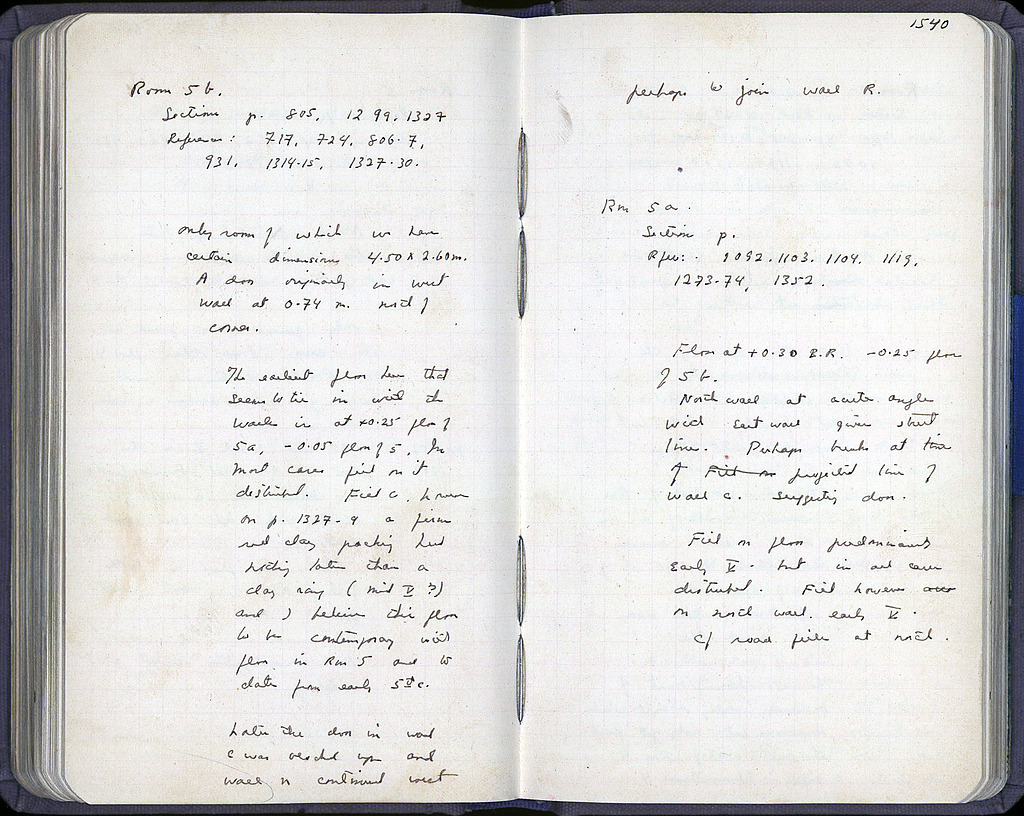 Room 5 b.
Sections p. 805, 1299, 1327
References: 717, 724, 806-7,
931, 1314-15, 1327-30.
only room of which we have
certain dimensions 4.50 x 2.60m.
A door originally in west
wall at 0.74 m. north of
corner.
The earliest floor here that
seems to tie in with the
walls is at +0.25 floor of
5a, -0.05 floor of 5. In
most cases fill on it
disturbed. Fill c, however
on p. 1327-9 a firm
red clay packing had
nothing later than a
clay ring (mid V ?)
and I believe this floor
to be contemporary with
floor in Rm 5 and to
date from early 5th c.
Later the door in wall
c was up and
wall n continued west
1540
perhaps to join wall R.
Rm 5a.
Section p.
Refer: 1092, 1103, 1104, 1119,
1273-74, 1352.
Floor at +0.30 B.R. -0.25 floor
of 5 b.
North wall at acute angle
with east wall gives street
line. Perhaps breaks at time
of Fill on projected line of
wall c. suggesting door.
Fill on floor predominantly
early V. but in all cases
disturbed. Fill however over
on north wall. early V.
cf road fills at north.